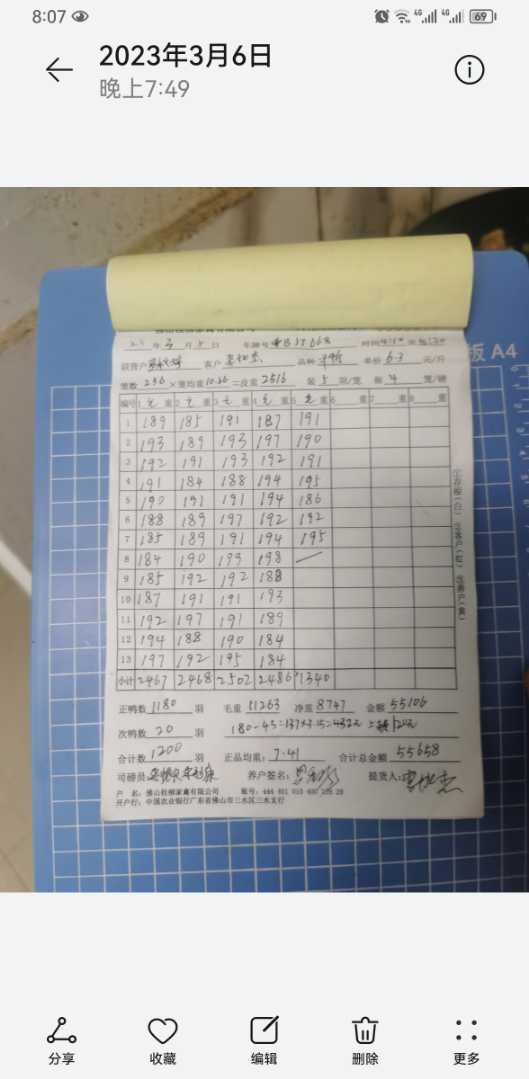 8:07
4G 4G 69
2023年3月6日
晚上7:49
年3月5日 车牌号 时间
客户 品种 单价6.3元/斤
笼数236×笼均重10.66=皮重2516 装5只/笼 每4笼/磅
编号 1毛重 2毛重 3毛重 4毛重 5毛重 6重 7重 8重
1 189 185 191 187 191
2 193 189 193 197 190
3 192 191 193 192 191
4 191 184 188 194 195
5 190 191 191 194 186
6 188 189 197 192 192
7 185 189 191 194 195
8 184 190 199 198
9 185 192 192 188
10 187 191 191 193
11 192 197 191 189
12 194 188 190 184
13 197 192 195 184
小计 2467 2468 2502 2486 1340
正鸭数1180羽 毛重11263 净重8747 金额55106
次鸭数20羽 180-45=137×3.15=432元
合计数1200羽 正品均重:7.41 合计总金额55658
司磅员: 养户签名: 提货人:
户 名:佛山桂柳家禽有限公司 账号:
开户行:中国农业银行广东省佛山市三水区三水支行
①存根(白) ②客户(红) ③养户(黄)
板 A4
分享 收藏 编辑 删除 更多